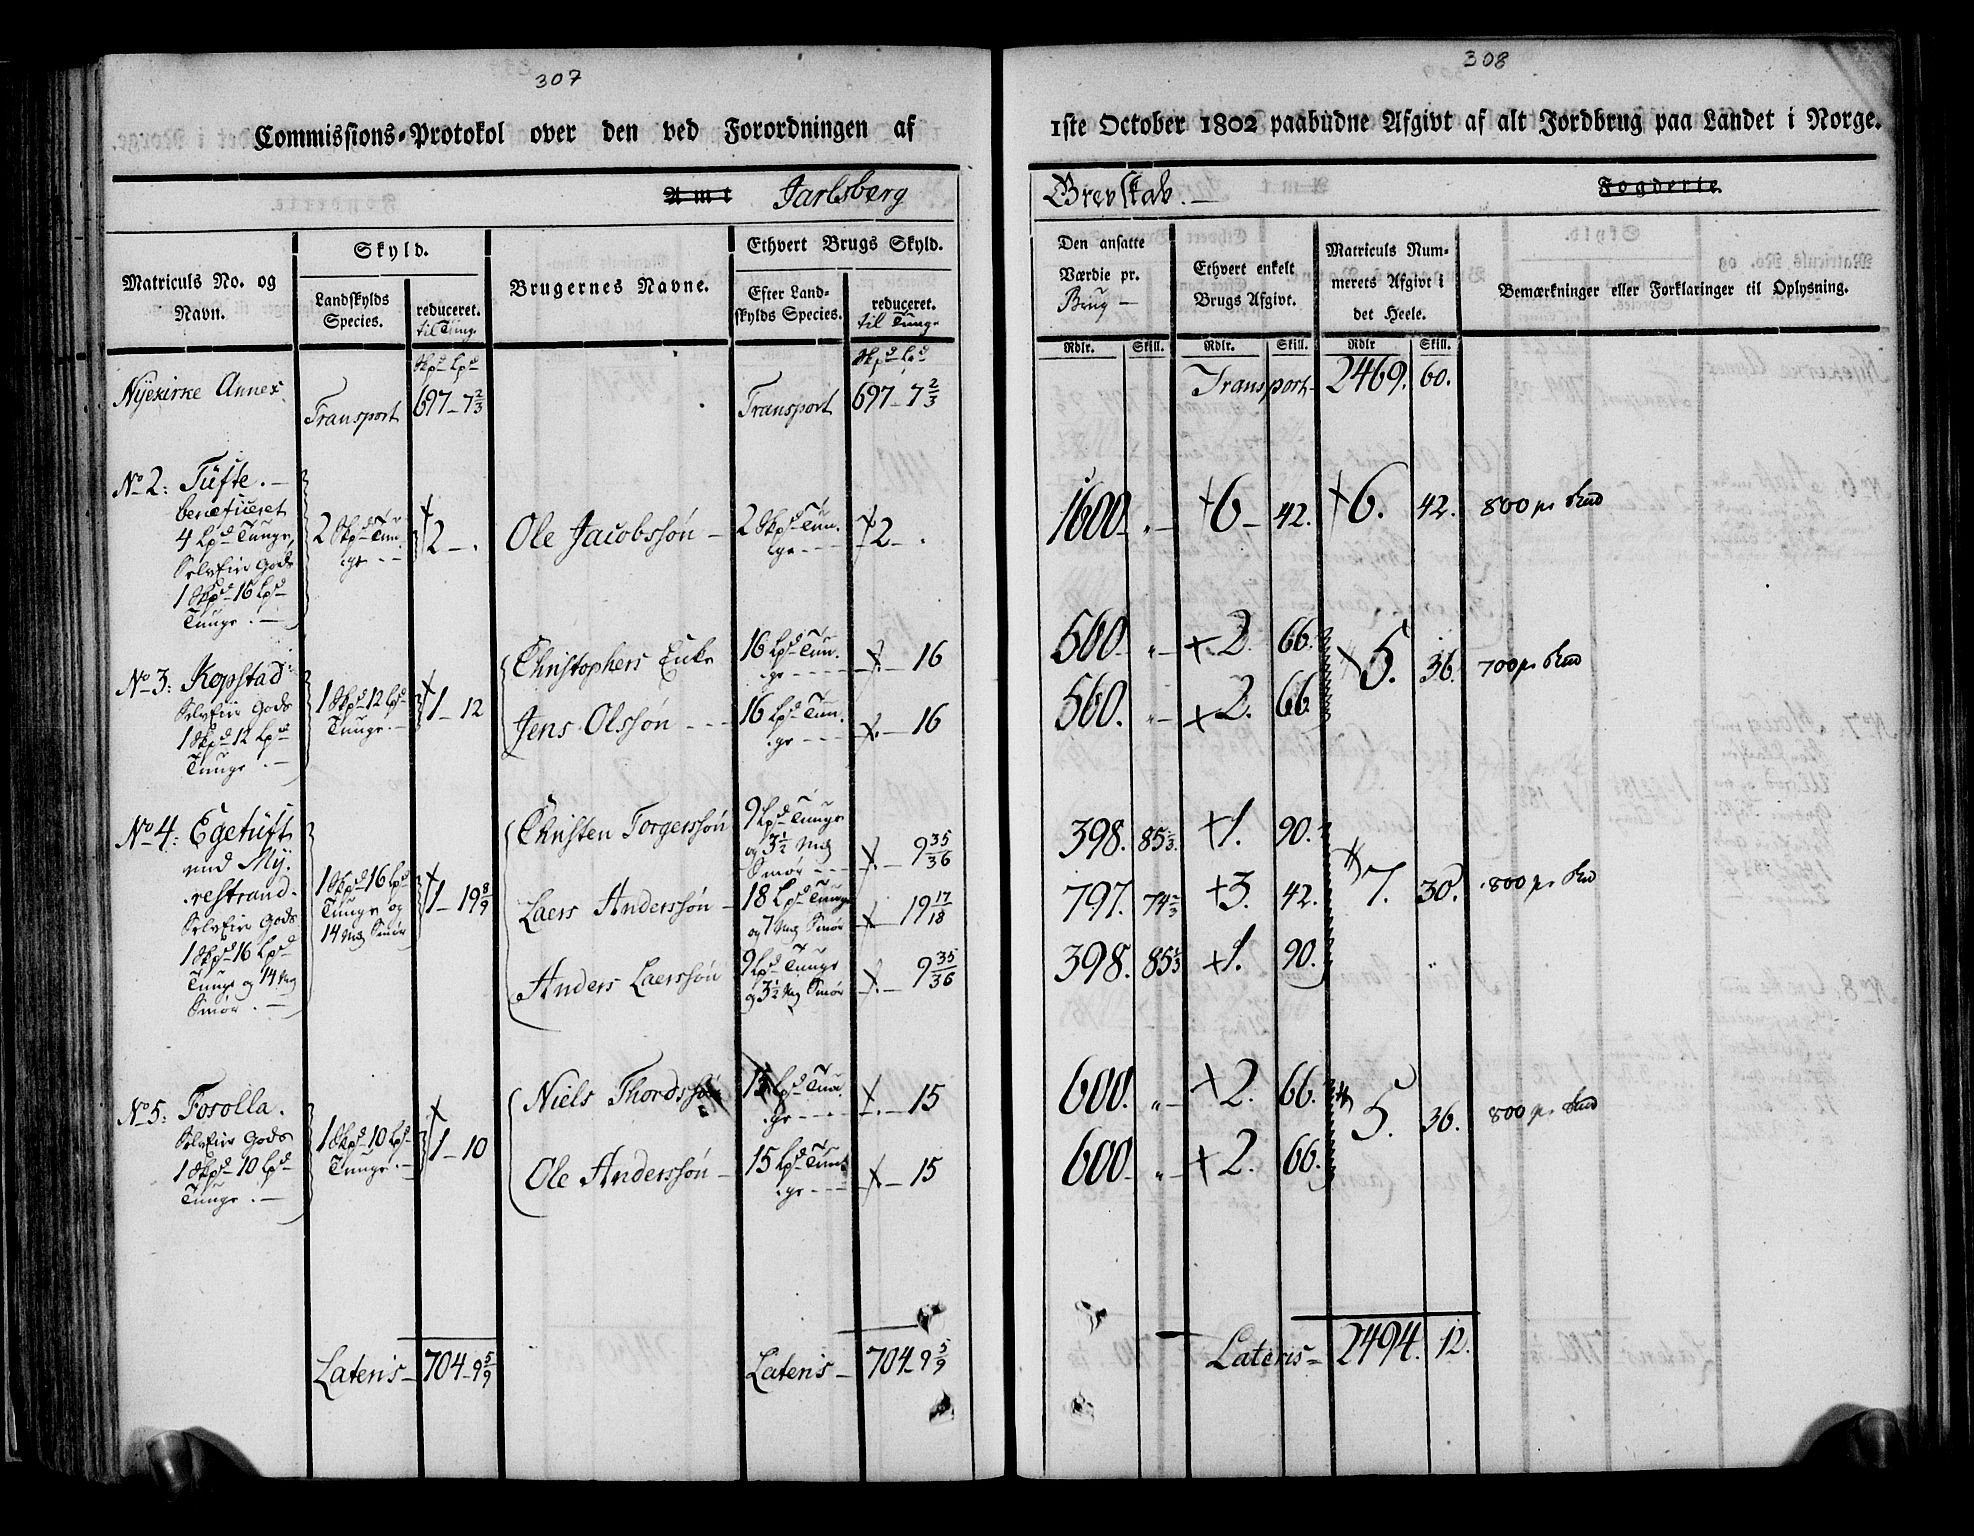 307
Commissions-Protokol over den ved Forordningen af
Amt Jarlsberg
Matriculs No. og Navn.
Skyld.
Landskylds Species.
reduceret. til Tunge
Brugernes Navne.
Ethvert Brugs Skyld.
Efter Landskylds Species.
reduceret. til Tunge
Skpd Lpd
Skpd Lpd
Nyekirke Annex.
Transport
697 - 7 2/3
Transport
697 - 7 2/3
No 2: Tufte. -
beneficeret
4 Lpd Tunge,
Selveier Gods
1 Skpd 16 Lpd
Tunge. -
2 Skpd Tun.
ge - -
2 - .
Ole Jacobssøn -
2 Skpd Tun.
ge - - -
2 - .
No 3: Kopstad:
Selveier Gods
1 Skpd 12 Lpd
Tunge. -
1 Skpd 12 Lpd
Tunge. -
1 - 12
Christophers Enke
16 Lpd Tun.
ge - - - -
16
Jens Olssøn - - -
16 Lpd Tun.
ge - - -
16
No 4: Egetuft
med My.
restrand.
Selveier Gods
1 Skpd 16 Lpd
Tunge og 14 Mg
Smør. -
1 Skpd 16 Lpd
Tunge og
14 Mg Smør
1 - 19 8/9
Christen Torgerssøn
9 Lpd Tunge
og 3 1/2 Mg
Smør - - -
9 35/36
Laers Anderssøn -
18 Lpd Tunge
og 7 Mg Smør
19 17/18
Anders Laerssøn
9 Lpd Tunge
og 3 1/2 Mg Smør
9 35/36
No 5: Fosolla.
Selveier Gods
1 Skpd 10 Lpd
Tunge. -
1 Skpd 10 Lpd
Tunge. -
1 - 10
Niels Thordssøn
15 Lpd Tun.
ge - - - -
15
Ole Anderssøn -
15 Lpd Tun.
ge - - -
15
Lateris -
704 - 9 5/9
Lateris -
704 - 9 5/9
308
1ste October 1802 paabudne Afgivt af alt Jordbrug paa Landet i Norge.
Grevskab. -
Fogderie.
Den ansatte Værdie pr. Brug -
Ethvert enkelt Brugs Afgivt.
Matriculs Nummerets Afgivt i det Heele.
Bemærkninger eller Forklaringer til Oplysning.
Rdlr. Skill. Rdlr. Skill. Rdlr Skill.
Transport 2469. 60.
1600 - " - 6 - 42. 6. 42. 800 pr Skd
560 - " - 2. 66. 5. 36. 700 pr Skd
560. " - 2. 66.
398. 85 1/3. 1. 90.
797. 74 2/3 3. 42. 7. 30. 800 pr Skd
398. 85 1/3 1. 90.
600. " - 2. 66. 5. 36. 800 pr Skd
600 - " - 2. 66.
Lateris - 2494. 12.